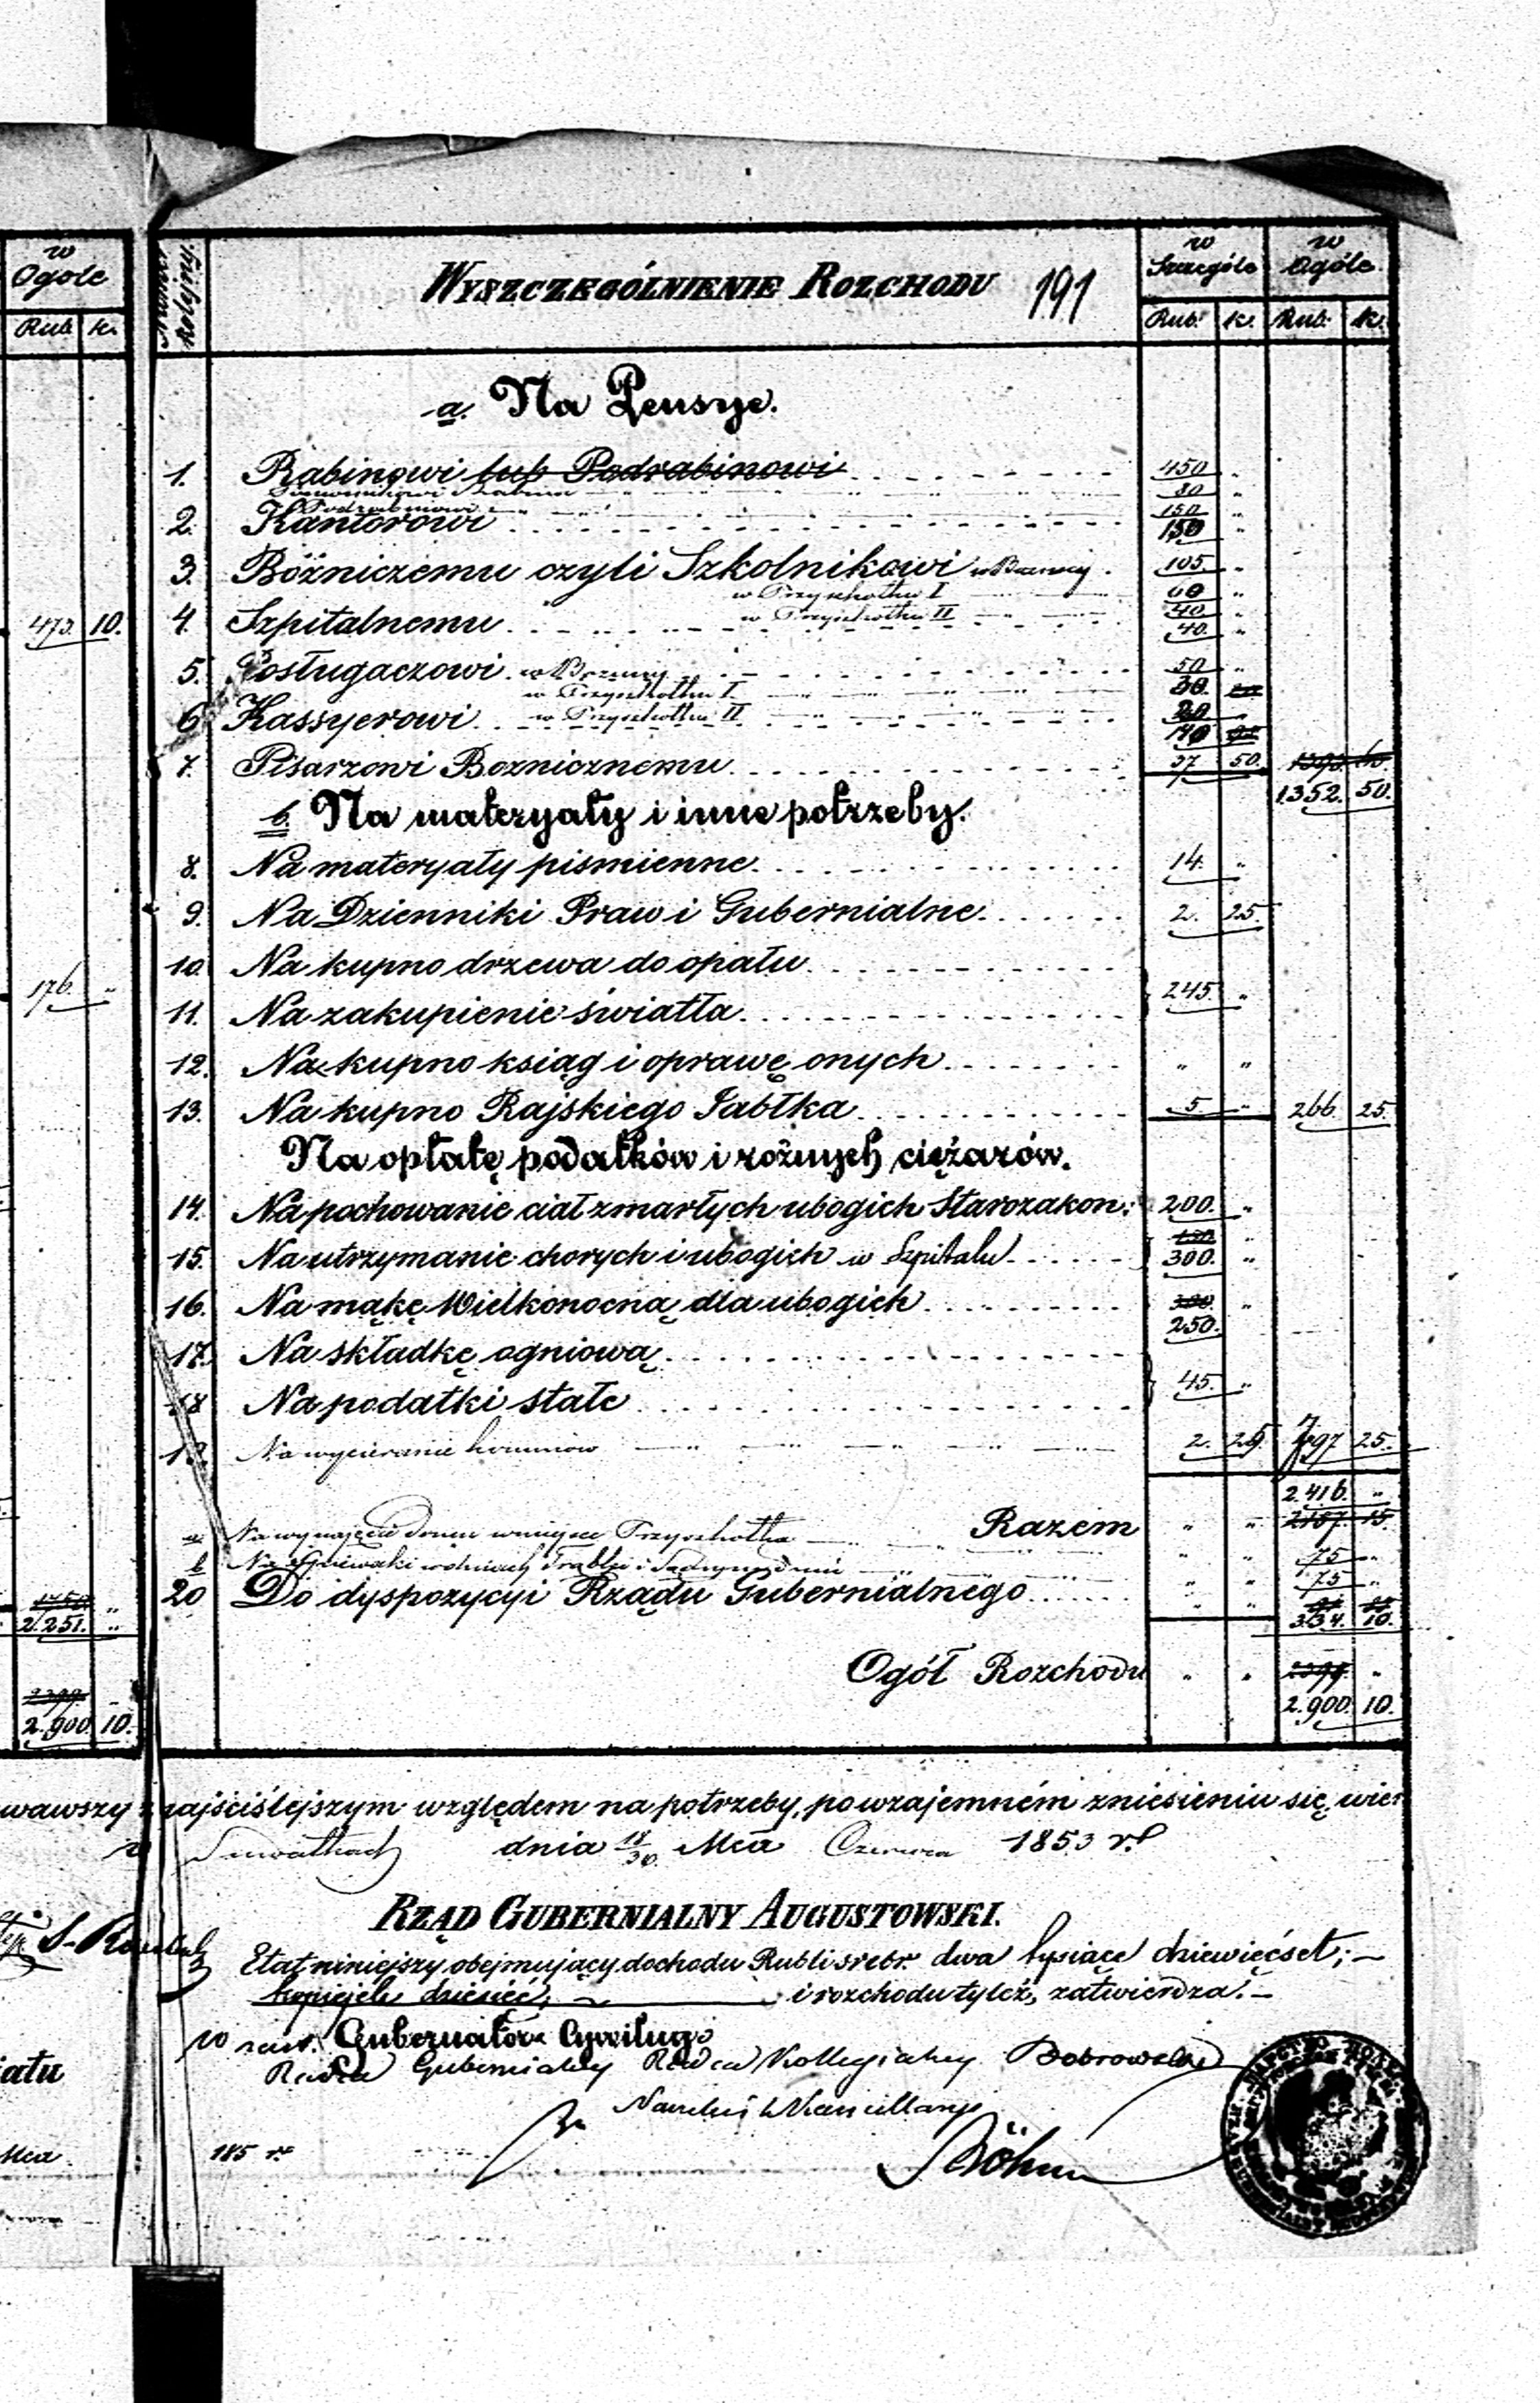 w
Ogóle
Rub. k.
473. 10.
176. "
1750 "
2.251. "
2399. "
2.900. 10.
WYSZCZEGÓLNIENIE ROZCHODU 191
w Szczególe
w Ogóle
Rub. k. Rub. k.
a. Na Pensye.
1. Rabinowi lub Podrabinowi 450 "
80 "
Podrabinowi 150 "
2. Kantorowi 150 "
3. Bóżniczemu czyli Szkolnikowi w Boznicy 105. "
w Przyschołku I 60 "
w Przyschołku II 40 "
4. Szpitalnemu 40. "
5. Posługaczowi w Boznicy 50 "
w Przyschołku I 30.
w Przyschołku II 20 "
6. Kassyerowi 140
7. Pisarzowi Boznicznemu 37 50.
1352. 50.
b. Na materyały i inne potrzeby.
8. Na materyały piśmienne 14. "
9. Na Dzienniki Praw i Gubernialne 2. 25.
10. Na kupno drzewa do opału
245. "
11. Na zakupienie światła
12. Na kupno ksiąg i oprawę onych " "
13. Na kupno Rajskiego Jabłka 5 " 266. 25.
Na opłatę podatków i rożnych ciężarów.
14. Na pochowanie ciał zmarłych ubogich Starozakon: 200. "
150 "
15. Na utrzymanie chorych i ubogich w Szpitalu 300. "
16. Na mąkę Wielkonocną dla ubogich 300 "
250.
17. Na składkę ogniową
45. "
18 Na podatki stałe
19. Na wycieranie kominów 2. 25. 797 25.
2.416. "
Razem " " 2157. 15.
a Na wynajęcie domu w miejsce Przyschołka " " 75 "
b " " 75 "
20 Do dyspozycyi Rządu Gubernialnego " "
334. 10.
Ogół Rozchodu " " 2399. "
2.900. 10.
wawszy z najściślejszym względem na potrzeby, po wzajemném zniesieniu się, wier
w Suwałkach dnia 18/30. Mca Czerwca 1853 r.
RZĄD GUBERNIALNY AUGUSTOWSKI.
Etat niniejszy obejmujący dochodu Rubli srebr. dwa tysiące dziewięćset;
kopiejek dziesięć, i rozchodu tyleż, zatwierdza.
w zast. Gubernatora Cywilnego
Radca Gubernialny Radca Kollegialny Dobrowolski
Naczelnik Kancellaryi
Za Böhm
iatu
Mca 185 r.